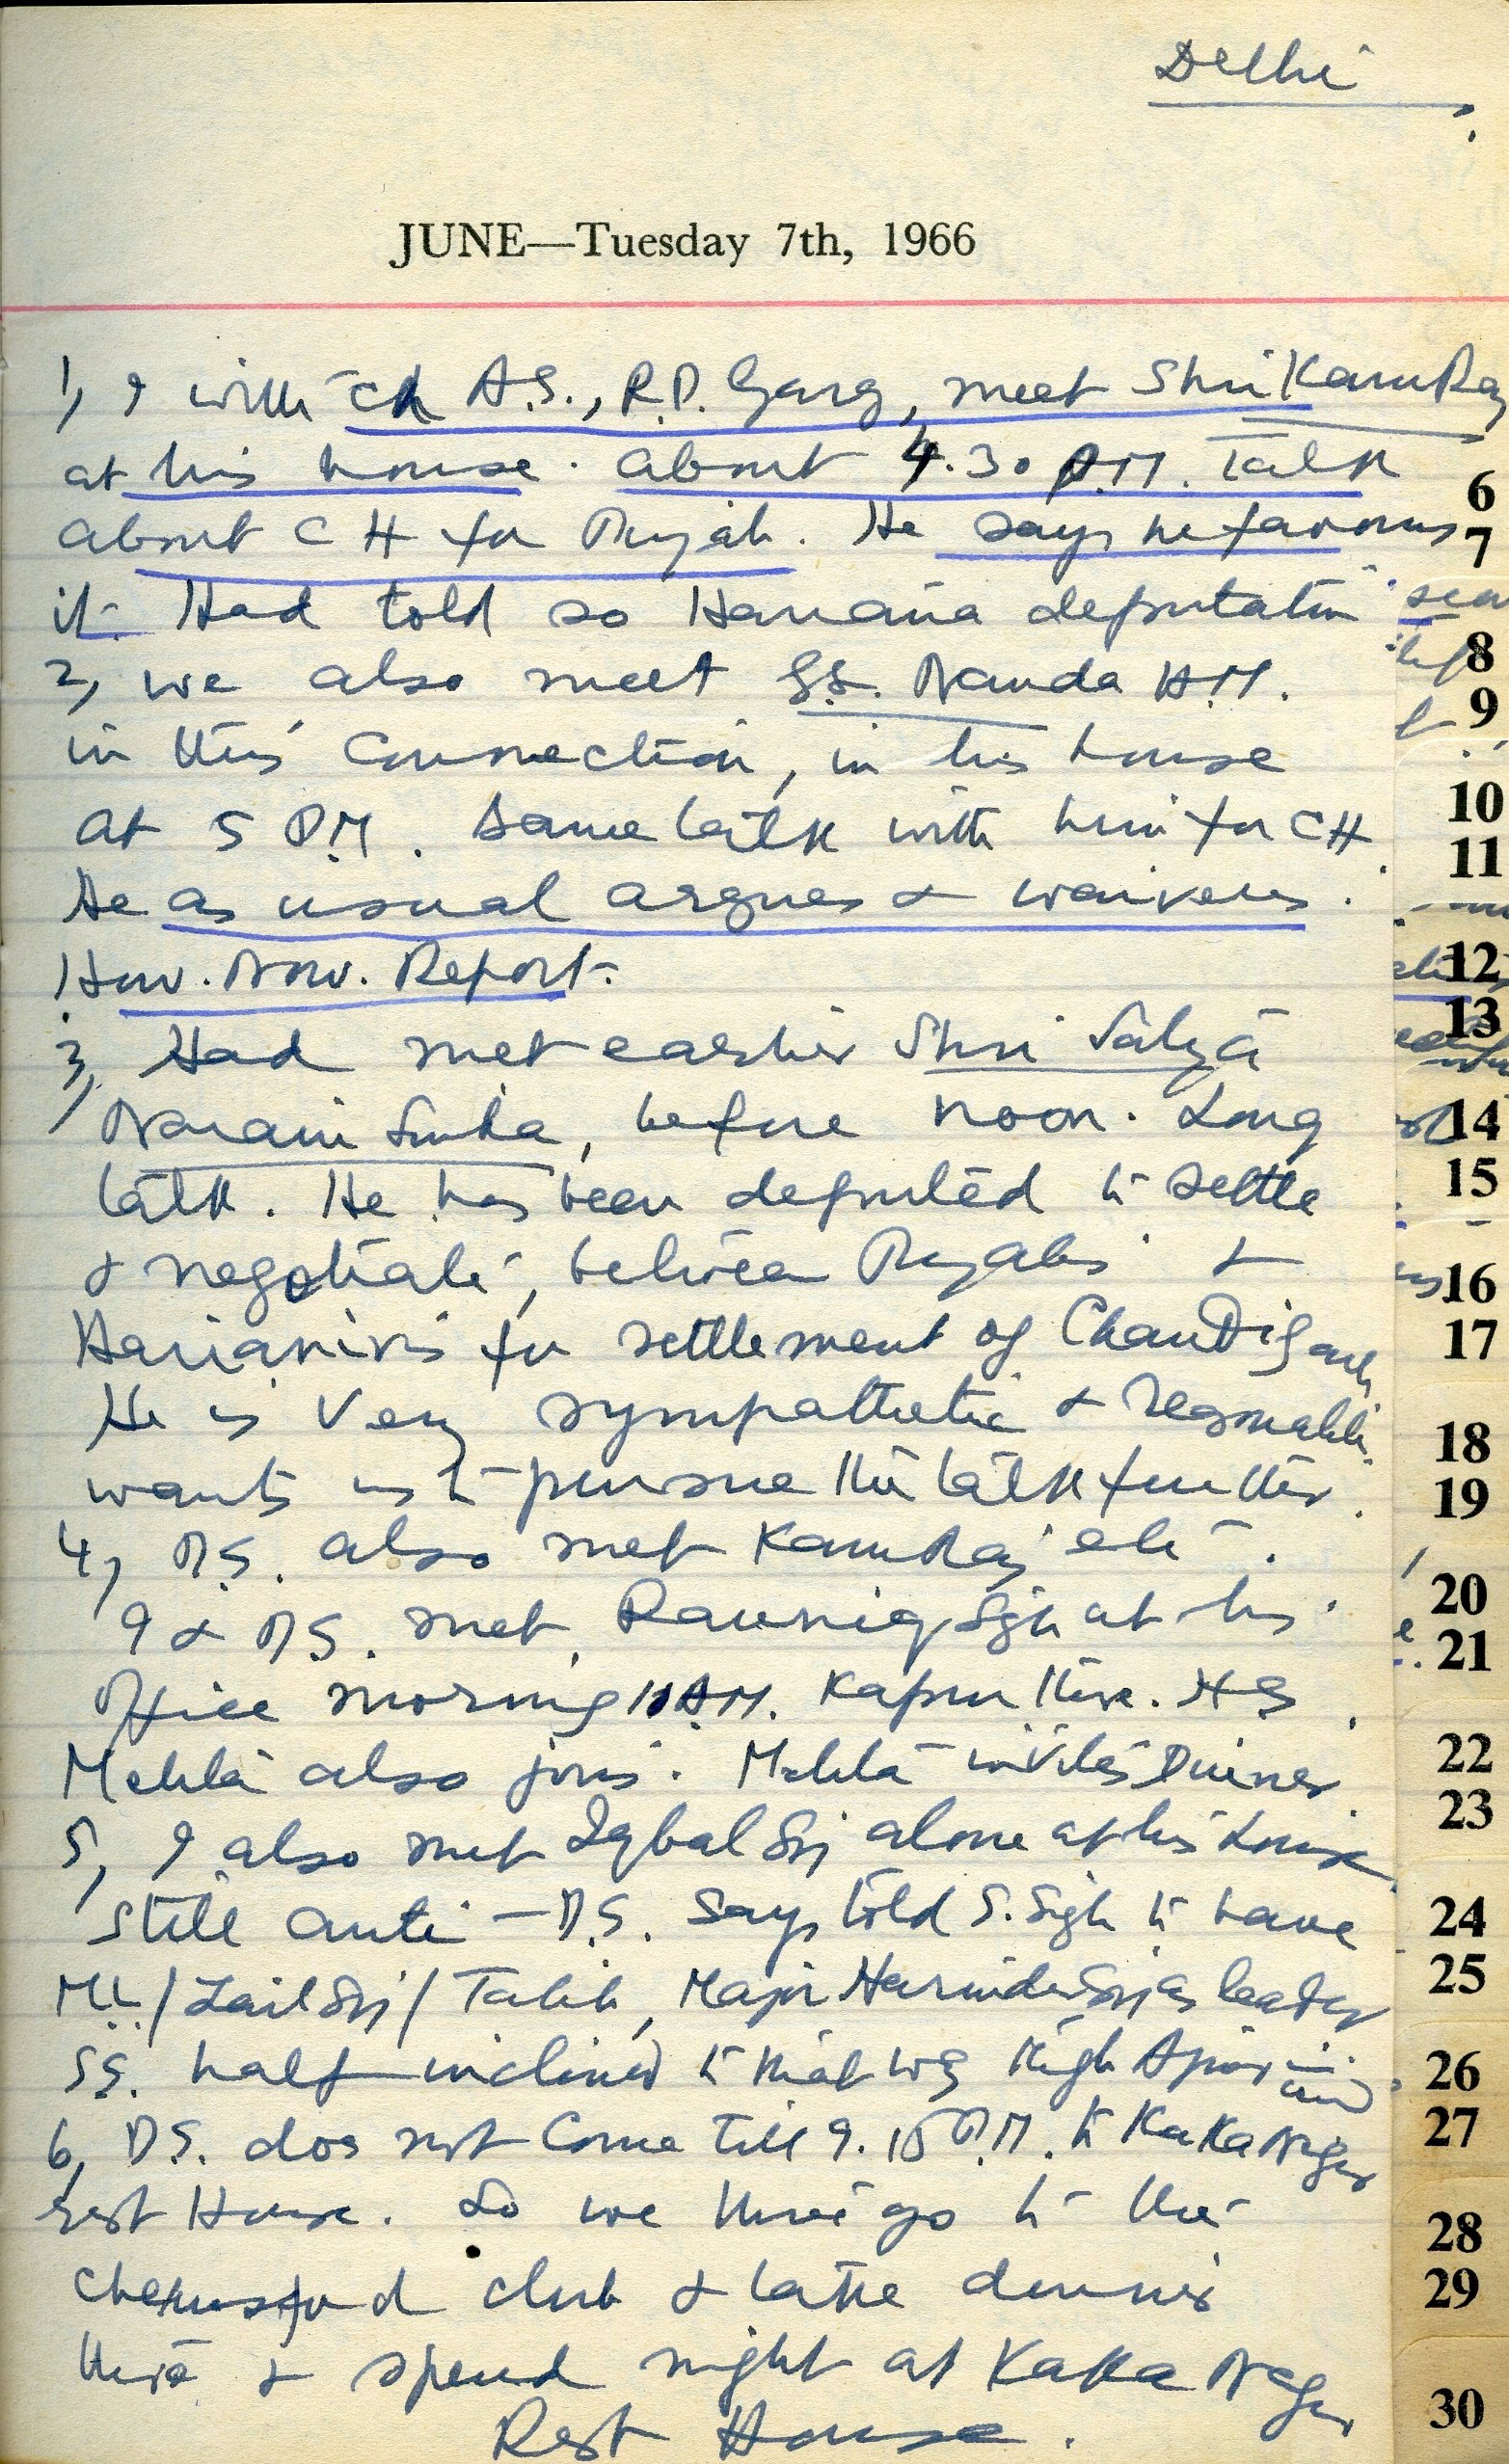 Delhi
JUNE—Tuesday 7th, 1966
1, I with Ch A.S., R.P. Garg, meet Shri KamRaj
at his house. about 4.30 P.M. Talk
about CH for Punjab. He says he favours
it. Had told so Hariana deputation
2, we also meet G.L. Nanda H.M.
in this connection, in his house
at 5 P.M. same talk with him for CH
He as usual argues & waivers.
3, Had met earlier Shri Satya
Narain Sinha, before noon. Long
talk. He has been deputed to settle
& negotiate, between Punjabis &
Harianvis for settlement of Chandigarh
He is very sympathetic & reasonable
wants us to pursue the talk further.
4, D.S. also met KamRaj etc.
I & D.S. met Rauniq Sgh at his
office morning 10 A.M. Kapur there. H S
Mehta also joins. Mehta invites Dinner
5, I also met Iqbal Sgh alone at his house
still anti-D.S. Says told S. Sigh to have
M.L./Zail Sgh/Talib, Major Harinder Sgh as leader
S.S. half inclined to that
6, D.S. does not come till 9.15 P.M. to KaKa Nagar
rest House. So we three go to the
Chemsford club & take dinner
there & spend night at Kaka Nagar
Rest House.
6
7
8
9
10
11
12
13
14
15
16
17
18
19
20
21
22
23
24
25
26
27
28
29
30